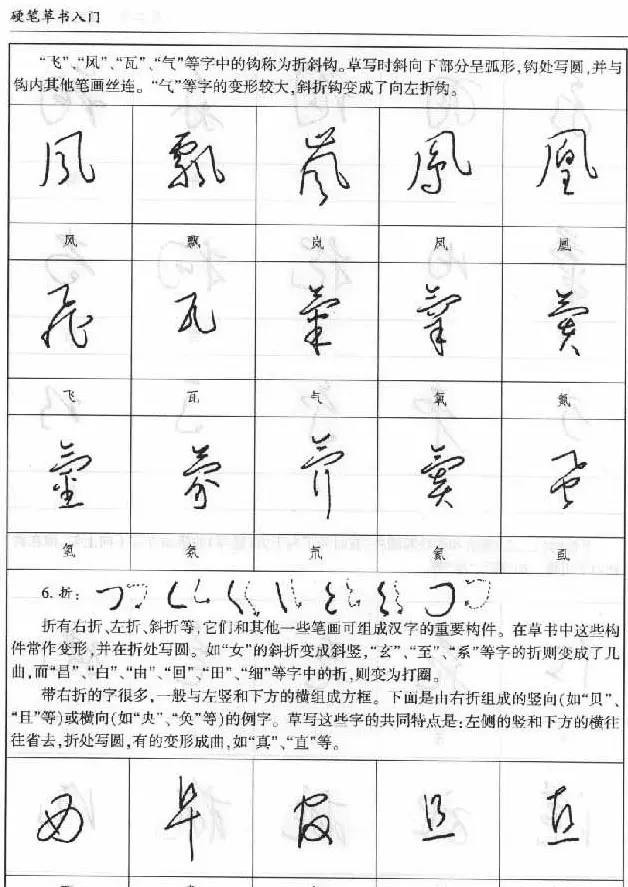 硬笔草书入门
“飞”、“风”、“瓦”、“气”等字中的钩称为折斜钩。草写时斜向下部分呈弧形,钩处写圆,并与
钩内其他笔画丝连。“气”等字的变形较大,斜折钩变成了向左折钩。
风 飘 岚 凤 凰
风 飘 岚 凤 凰
飞 瓦 气 氧 氮
飞 瓦 气 氧 氮
氢 氛 虱
氢 氛 虱
6. 折:
折有右折、左折、斜折等,它们和其他一些笔画可组成汉字的重要构件。在草书中这些构
件常作变形,并在折处写圆。如“女”的斜折变成斜竖,“玄”、“至”、“系”等字的折则变成了几
曲,而“昌”、“白”、“由”、“回”、“田”、“细”等字中的折,则变为打圈。
带右折的字很多,一般与左竖和下方的横组成方框。下面是由右折组成的竖向(如“贝”、
“且”等)或横向(如“央”、“奂”等)的例字。草写这些字的共同特点是:左侧的竖和下方的横往
往省去,折处写圆,有的变形成曲,如“真”、“直”等。